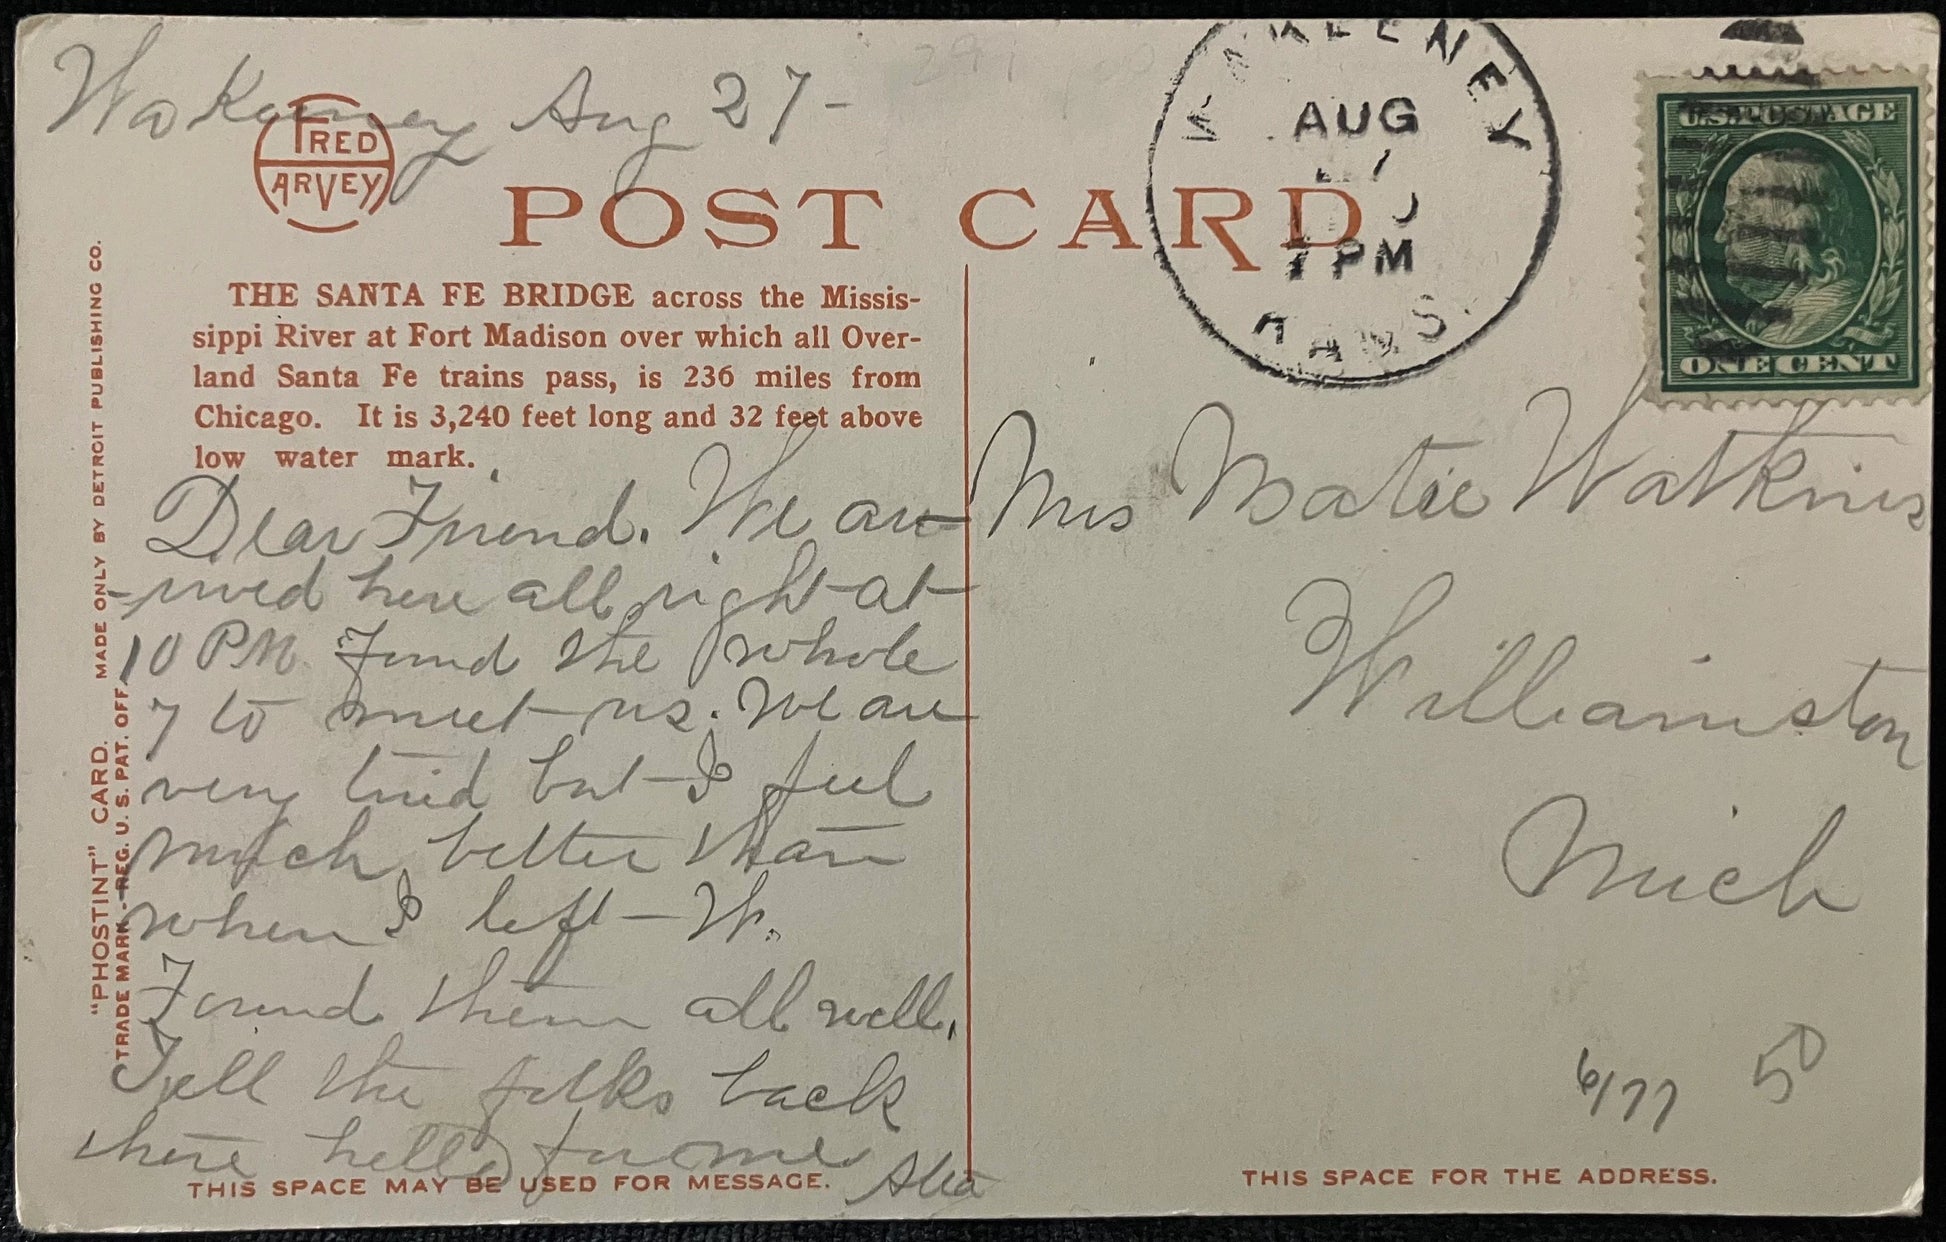 WaKeeney Aug 27-
FRED
HARVEY
POST CARD
WAKEENEY
AUG
7 PM
KANS.
U.S. POSTAGE
ONE CENT
THE SANTA FE BRIDGE across the Missis-
sippi River at Fort Madison over which all Over-
land Santa Fe trains pass, is 236 miles from
Chicago. It is 3,240 feet long and 32 feet above
low water mark.
"PHOSTINT" CARD. MADE ONLY BY DETROIT PUBLISHING CO.
TRADE MARK - REG. U. S. PAT. OFF.
Dear Friend. We ar-
-rived here all right at
10 PM. Found the whole
7 to meet us. We are
very tired but I feel
much better than
when I left W.
Found them all well.
Tell the folks back
there hello for me
Mrs Matie Watkins
Williamston
Mich
6/77 50
THIS SPACE MAY BE USED FOR MESSAGE.
THIS SPACE FOR THE ADDRESS.